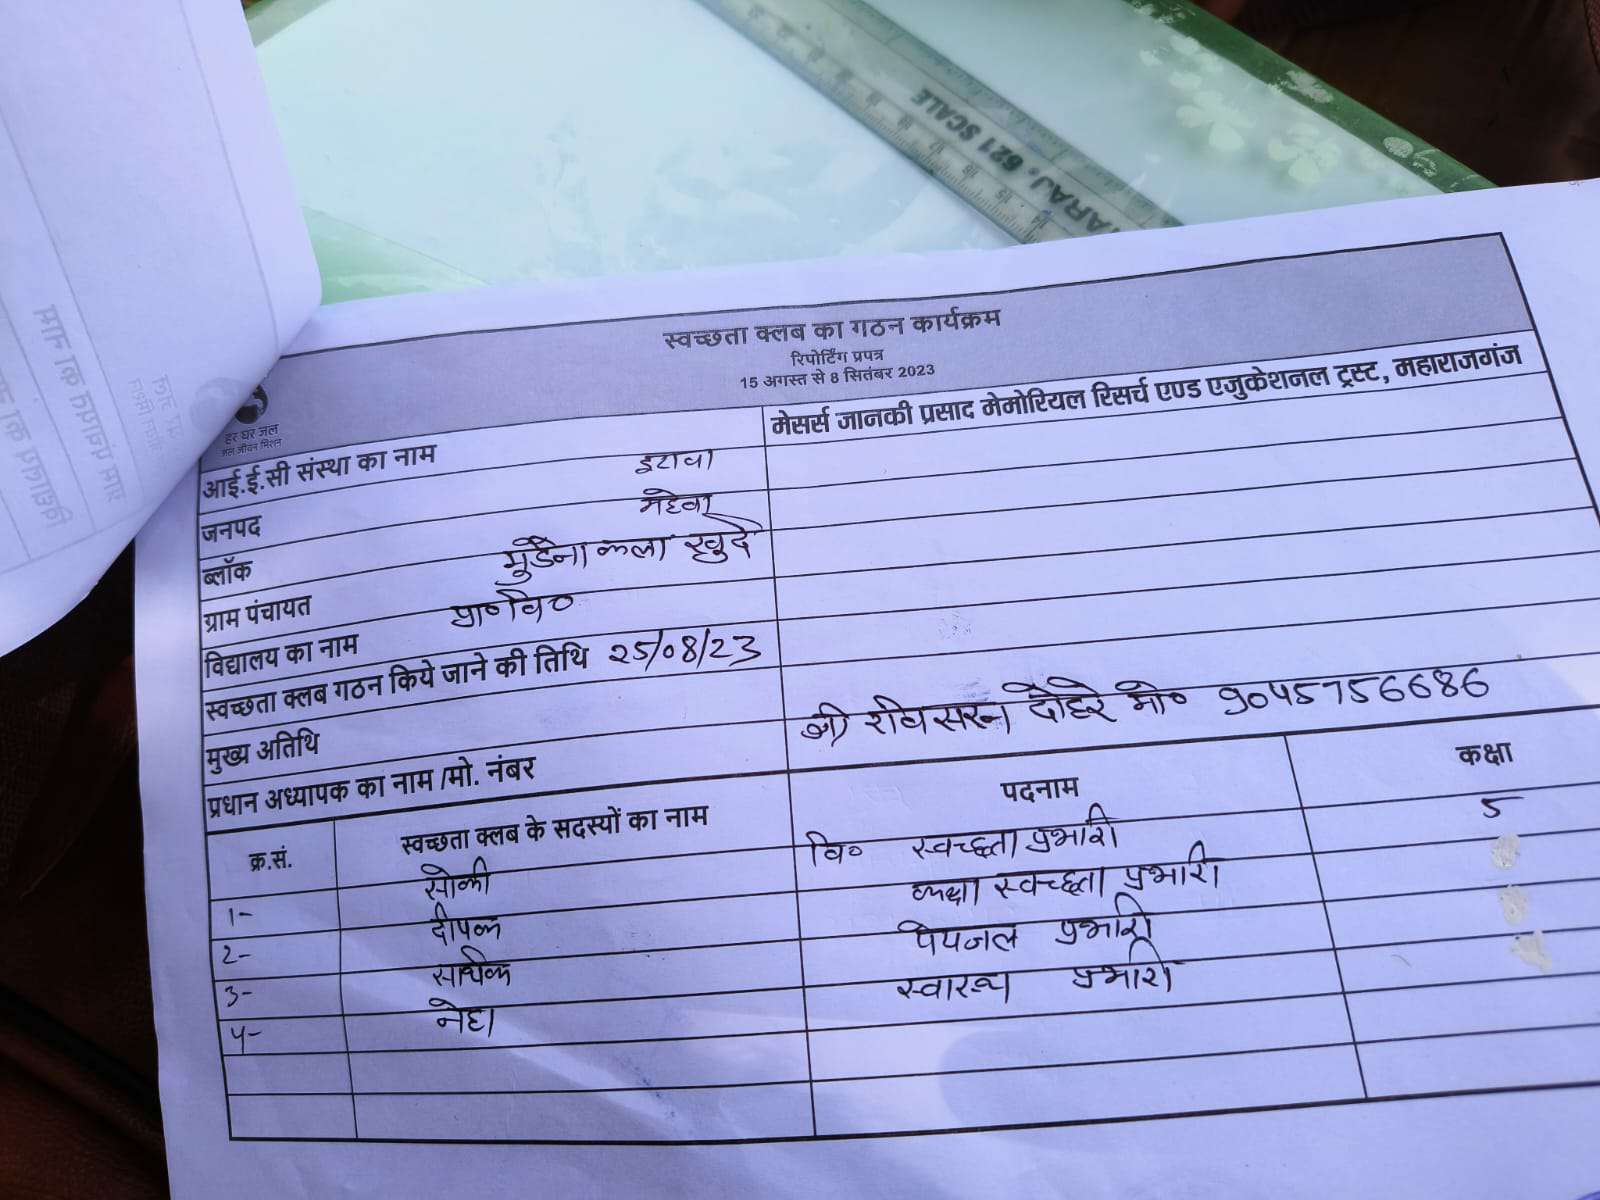 MAHARAJ. 621 SCALE
स्वच्छता क्लब का गठन कार्यक्रम
रिपोर्टिंग प्रपत्र
15 अगस्त से 8 सितंबर 2023
हर घर जल
जल जीवन मिशन
आई.ई.सी संस्था का नाम मेसर्स जानकी प्रसाद मेमोरियल रिसर्च एण्ड एजुकेशनल ट्रस्ट, महाराजगंज
जनपद इटावा
ब्लॉक महेवा
ग्राम पंचायत मुडैना कला खुर्द
विद्यालय का नाम प्रा० वि०
स्वच्छता क्लब गठन किये जाने की तिथि 25/08/23
मुख्य अतिथि
प्रधान अध्यापक का नाम /मो. नंबर श्री रविसरन दोहरे मो० 9045756686
क्र.सं. स्वच्छता क्लब के सदस्यों का नाम पदनाम कक्षा
1- सोकी वि० स्वच्छता प्रभारी 5
2- दीपक कक्षा स्वच्छता प्रभारी
3- सार्थक पेयजल प्रभारी
4- नेहा स्वास्थ्य प्रभारी